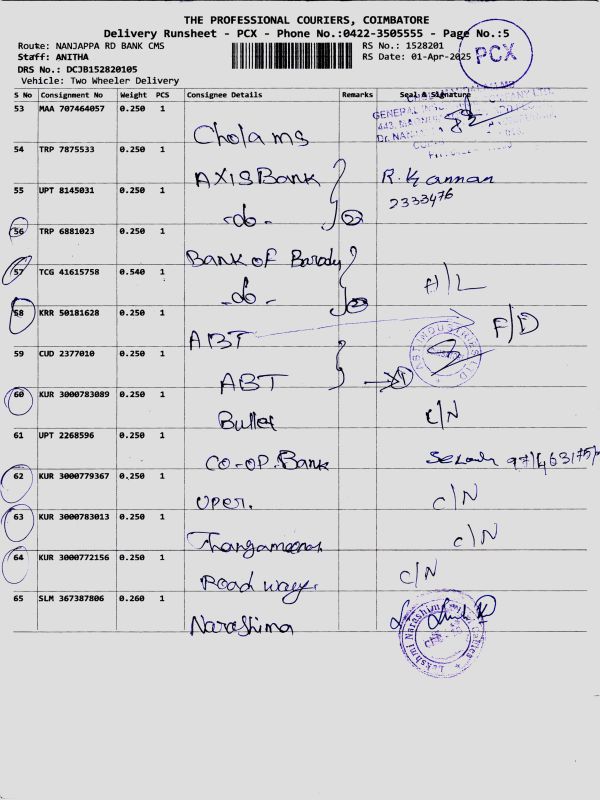 THE PROFESSIONAL COURIERS, COIMBATORE
Delivery Runsheet - PCX - Phone No.:0422-3505555 - Page No.:5
Route: NANJAPPA RD BANK CMS RS No.: 1528201
Staff: ANITHA RS Date: 01-Apr-2025
PCX
DRS No.: DCJB152820105
Vehicle: Two Wheeler Delivery
S No Consignment No Weight PCS Consignee Details Remarks Seal & Signature
53 MAA 707464057 0.250 1 Chola ms
54 TRP 7875533 0.250 1 AXIS Bank R. Kannan
2333476
55 UPT 8145031 0.250 1 -do-
56 TRP 6881023 0.250 1 Bank of Barody
57 TCG 41615758 0.540 1 -do- A/L
58 KRR 50181628 0.250 1 ABT F/D
ABT INDUSTRIES LTD
59 CUD 2377010 0.250 1 ABT
60 KUR 3000783089 0.250 1 Bullet C/N
61 UPT 2268596 0.250 1 CO-OP. Bank
62 KUR 3000779367 0.250 1 uper. C/N
63 KUR 3000783013 0.250 1 C/N
64 KUR 3000772156 0.250 1 Road way. C/N
65 SLM 367387806 0.260 1 Narashima